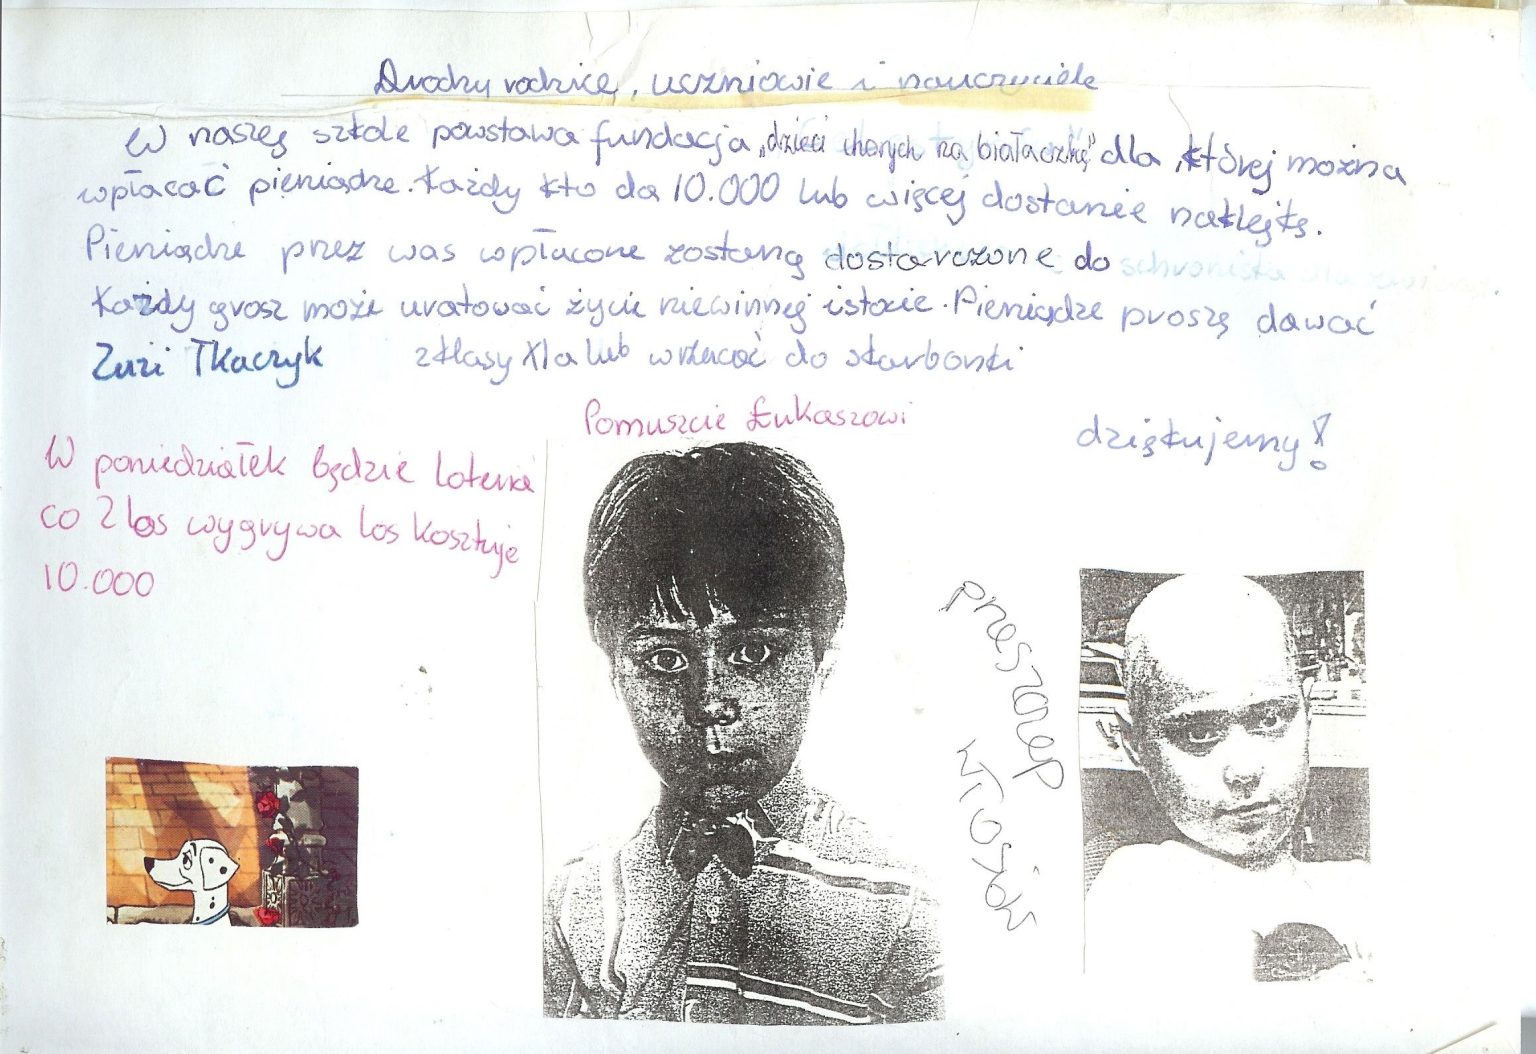 Drodzy rodzice, uczniowie i nauczyciele
W naszej szkole powstawa fundacja „dzieci chorych na białaczkę" dla której można
wpłacać pieniądze. Każdy kto da 10.000 lub więcej dostanie naklejkę.
Pieniądze przez was wpłacone zostaną dostarczone do schroniska dla
Każdy grosz może uratować życie niewinnej istocie. Pieniądze proszę dawać
Zuzi Tkaczyk z klasy XI a lub wrzucać do skarbonki
dziękujemy!
Pomuszcie Łukaszowi
W poniedziałek będzie loteria
co 2 los wygrywa los kosztuje
10.000
przeszczep
włosów